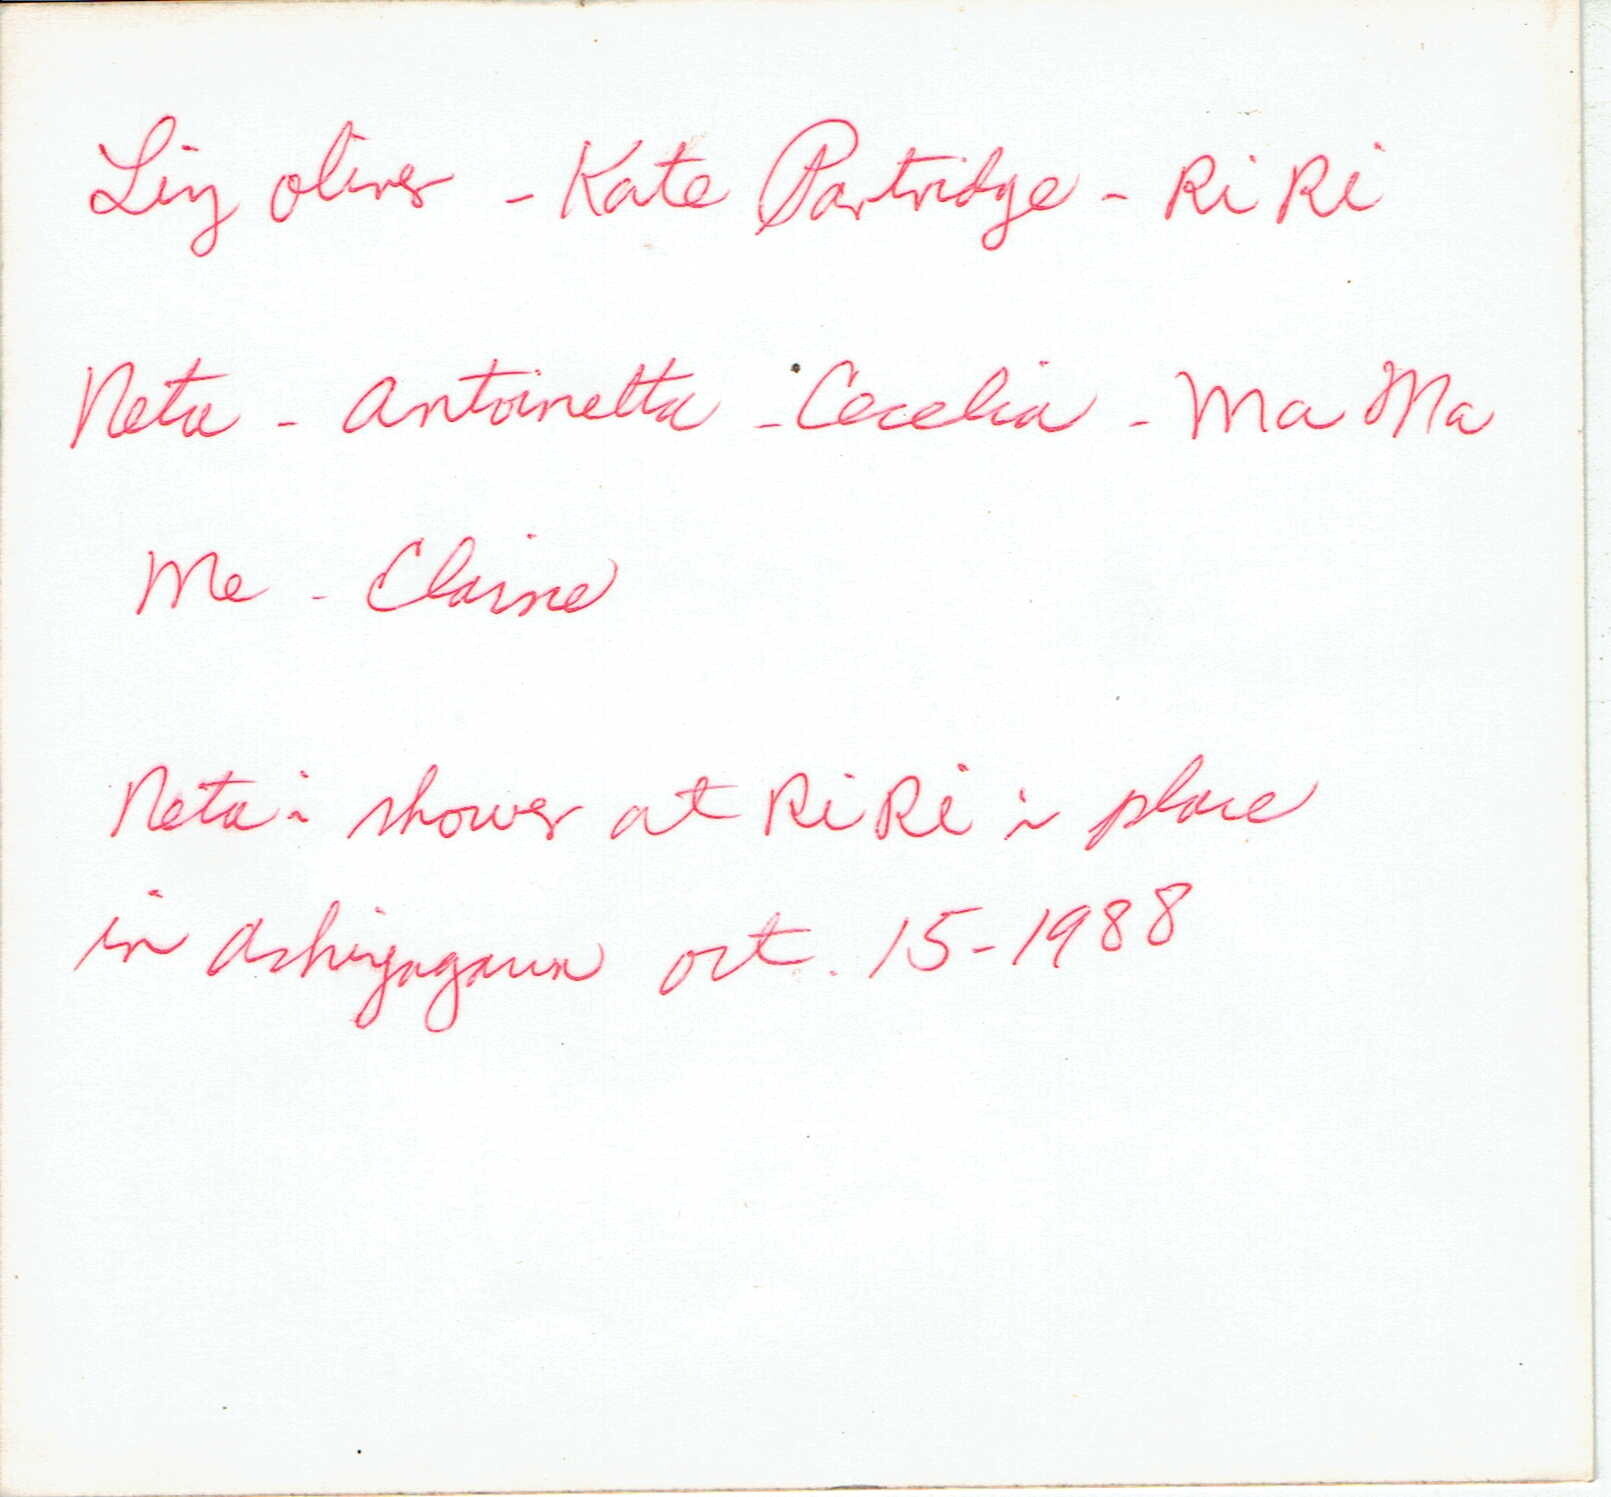 Liz Oliver - Kate Partridge - RiRi
Neta - Antoinetta - Cecelia - Ma Ma
Me - Elaine
Neta's shower at RiRi's place
in Ashiyagawa Oct. 15-1988